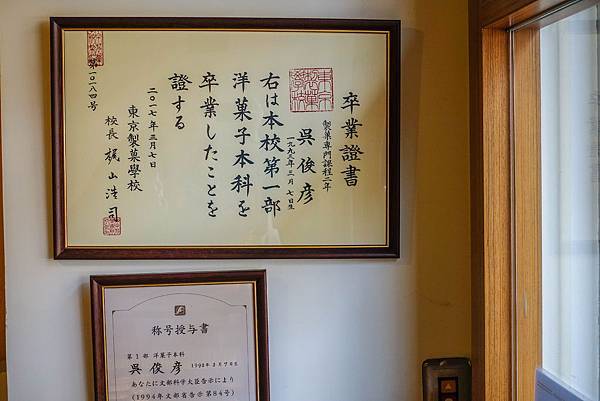 卒業證書
製菓専門課程二年
呉俊彦
右は本校第一部
洋菓子本科を
卒業したことを
證する
二〇一七年三月七日
東京製菓學校
校長 梶山浩司
第一〇八四号
称号授与書
第1部 洋菓子本科
呉 俊彦
あなたに文部科学大臣告示により
(1994年文部省告示第84号)